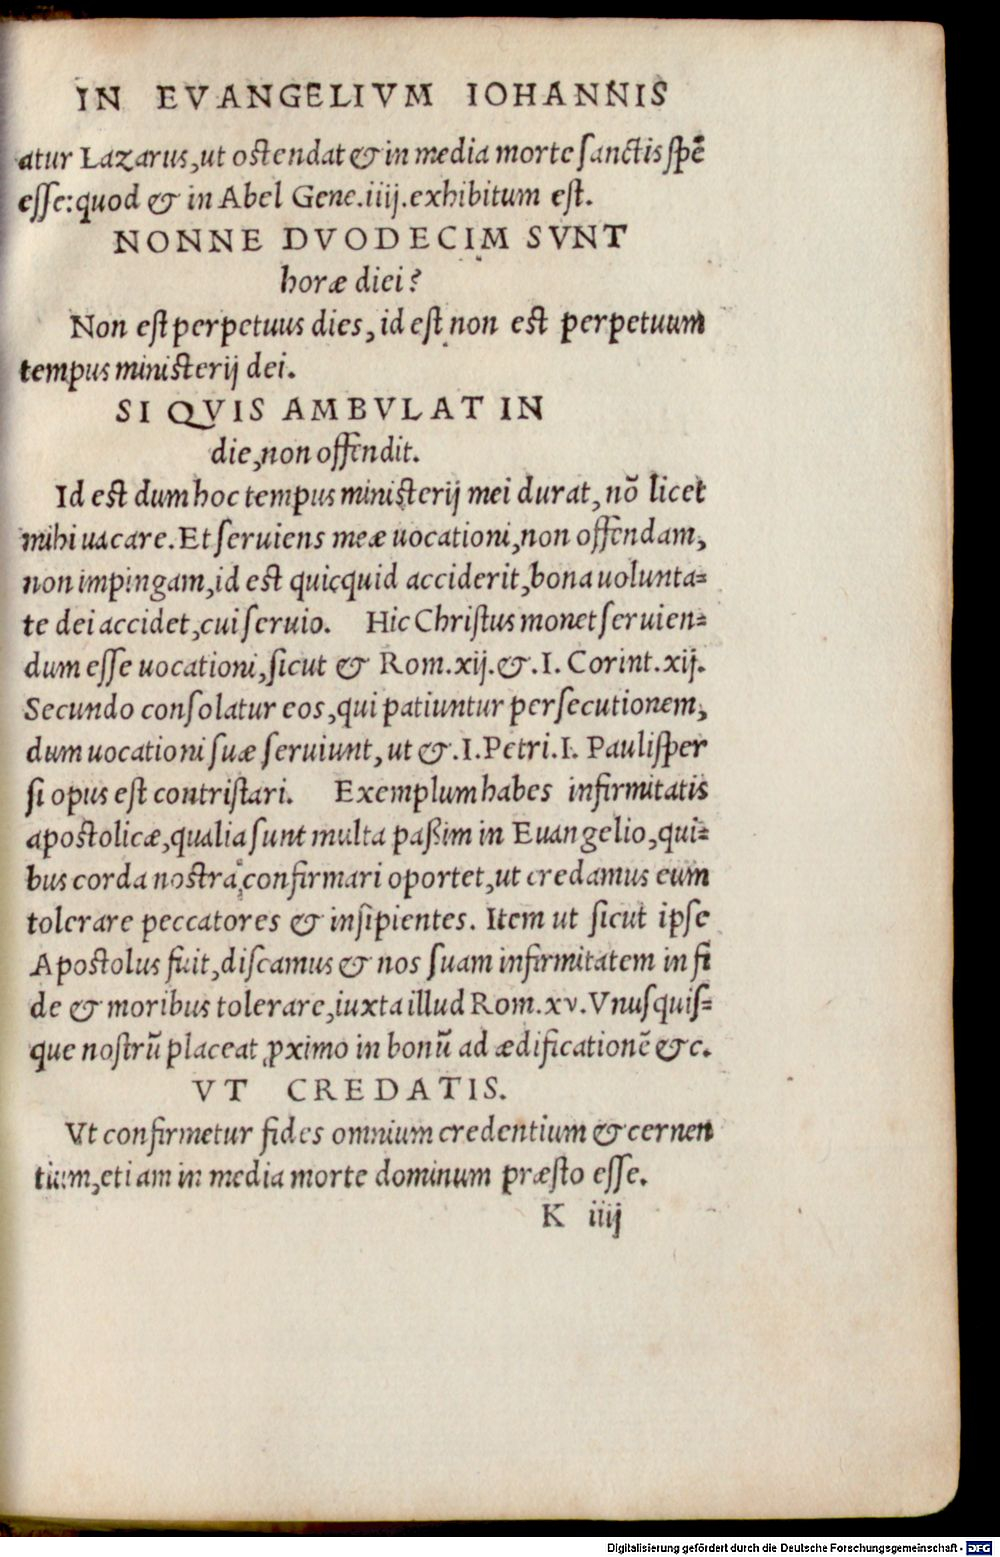 IN EVANGELIVM IOHANNIS
atur Lazarus, ut ostendat & in media morte sanctis spē
esse: quod & in Abel Gene. iiij. exhibitum est.
NONNE DVODECIM SVNT
horæ diei?
Non est perpetuus dies, id est non est perpetuum
tempus ministerij dei.
SI QVIS AMBVLAT IN
die, non offendit.
Id est dum hoc tempus ministerij mei durat, nō licet
mihi uacare. Et seruiens meæ uocationi, non offendam,
non impingam, id est quicquid acciderit, bona uolunta-
te dei accidet, cui seruio. Hic Christus monet seruien-
dum esse uocationi, sicut & Rom. xij. &. I. Corint. xij.
Secundo consolatur eos, qui patiuntur persecutionem,
dum uocationi suæ seruiunt, ut &. I. Petri. I. Paulisper
si opus est contristari. Exemplum habes infirmitatis
apostolicæ, qualia sunt multa paßim in Euangelio, qui-
bus corda nostra confirmari oportet, ut credamus eum
tolerare peccatores & insipientes. Item ut sicut ipse
Apostolus fuit, discamus & nos suam infirmitatem in fi
de & moribus tolerare, iuxta illud Rom. xv. Vnusquis-
que nostrū placeat ꝓximo in bonū ad ædificationē &c.
VT CREDATIS.
Vt confirmetur fides omnium credentium & cernen
tium, etiam in media morte dominum præsto esse.
K iiij
Digitalisierung gefördert durch die Deutsche Forschungsgemeinschaft - DFG